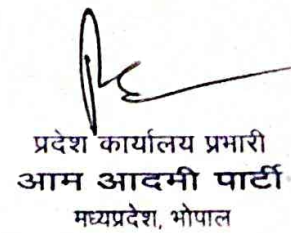 प्रदेश कार्यालय प्रभारी
आम आदमी पार्टी
मध्यप्रदेश, भोपाल